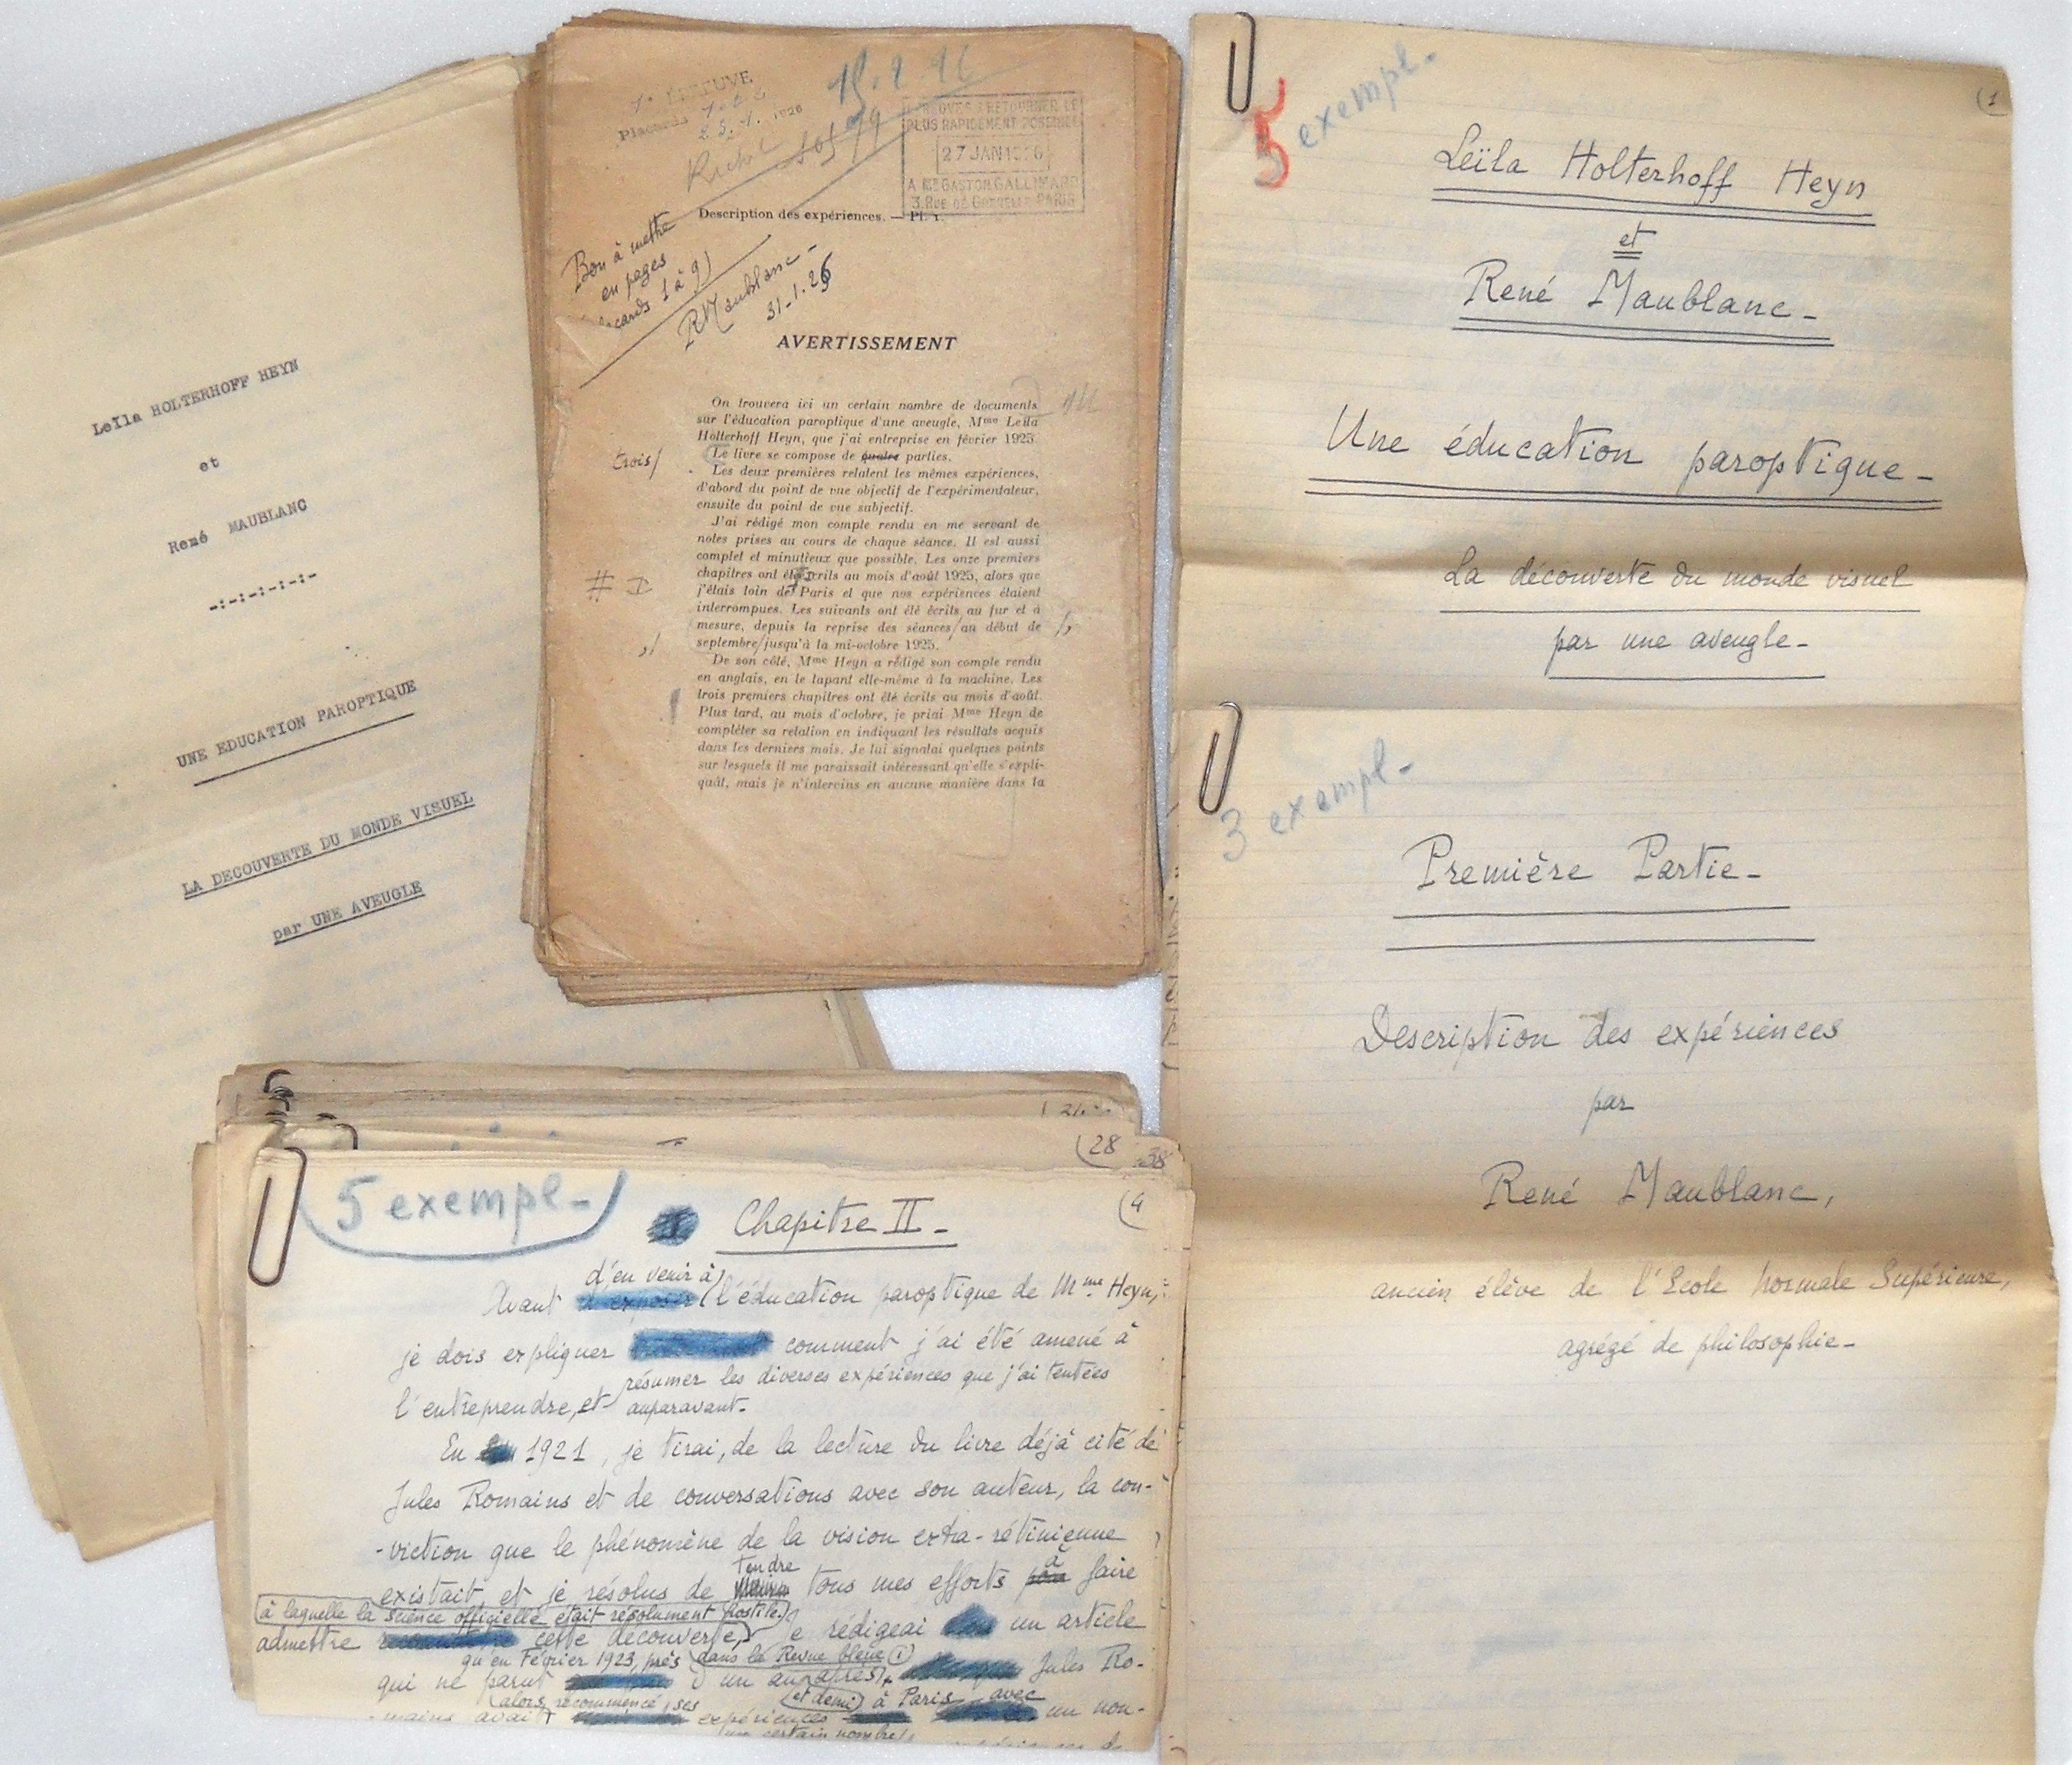 Leïla HOLTERHOFF HEYN
et
René MAUBLANC
-:-:-:-:-:-
UNE EDUCATION PAROPTIQUE
LA DECOUVERTE DU MONDE VISUEL
par UNE AVEUGLE
1e EPREUVE
Placards 1 et 2
28.1. 1926
EPREUVES A RETOURNER LE
PLUS RAPIDEMENT POSSIBLE
27 JAN 1926
A MR GASTON GALLIMARD
3. RUE DE GRENELLE PARIS
Description des expériences. — Pl. 1.
Bon à mettre
en pages
placards 1 à 9)
R Maublanc -
31-1.26
AVERTISSEMENT
On trouvera ici un certain nombre de documents
sur l'éducation paroptique d'une aveugle, Mme Leïla
Holterhoff Heyn, que j'ai entreprise en février 1925.
trois/ Le livre se compose de quatre parties.
Les deux premières relatent les mêmes expériences,
d'abord du point de vue objectif de l'expérimentateur,
ensuite du point de vue subjectif.
J'ai rédigé mon compte rendu en me servant de
notes prises au cours de chaque séance. Il est aussi
complet et minutieux que possible. Les onze premiers
chapitres ont été écrits au mois d'août 1925, alors que
j'étais loin de Paris et que nos expériences étaient
interrompues. Les suivants ont été écrits au fur et à
mesure, depuis la reprise des séances au début de
septembre jusqu'à la mi-octobre 1925.
De son côté, Mme Heyn a rédigé son compte rendu
en anglais, en le tapant elle-même à la machine. Les
trois premiers chapitres ont été écrits au mois d'août.
Plus tard, au mois d'octobre, je priai Mme Heyn de
compléter sa relation en indiquant les résultats acquis
dans les derniers mois. Je lui signalai quelques points
sur lesquels il me paraissait intéressant qu'elle s'expli-
quât, mais je n'intervins en aucune manière dans la
5 exempl-
(1
Leïla Holterhoff Heyn
et
René Maublanc-
Une éducation paroptique-
La découverte du monde visuel
par une aveugle-
3 exempl-
Première Partie-
Description des expériences
par
René Maublanc,
ancien élève de l'Ecole Normale Supérieure,
agrégé de philosophie-
(28
38
5 exempl-
(4
Chapitre II-
d'en venir à
Avant d'exposer l'éducation paroptique de Mme Heyn,
je dois expliquer comment j'ai été amené à
résumer les diverses expériences que j'ai tentées
l'entreprendre, et auparavant-
En 1921, je tirai, de la lecture du livre déjà cité de
Jules Romains et de conversations avec son auteur, la con-
-viction que le phénomène de la vision extra-rétinienne
tendre à
existait, et je résolus de tous mes efforts pour faire
à laquelle la science officielle était résolument hostile.
admettre cette découverte, Je rédigeai un article
qu'en Février 1923, près dans la Revue bleue (1)
qui ne parut d'un an après, Jules Ro-
alors recommencé ses et demi à Paris avec
-mains avait expériences un nou-
un certain nombre